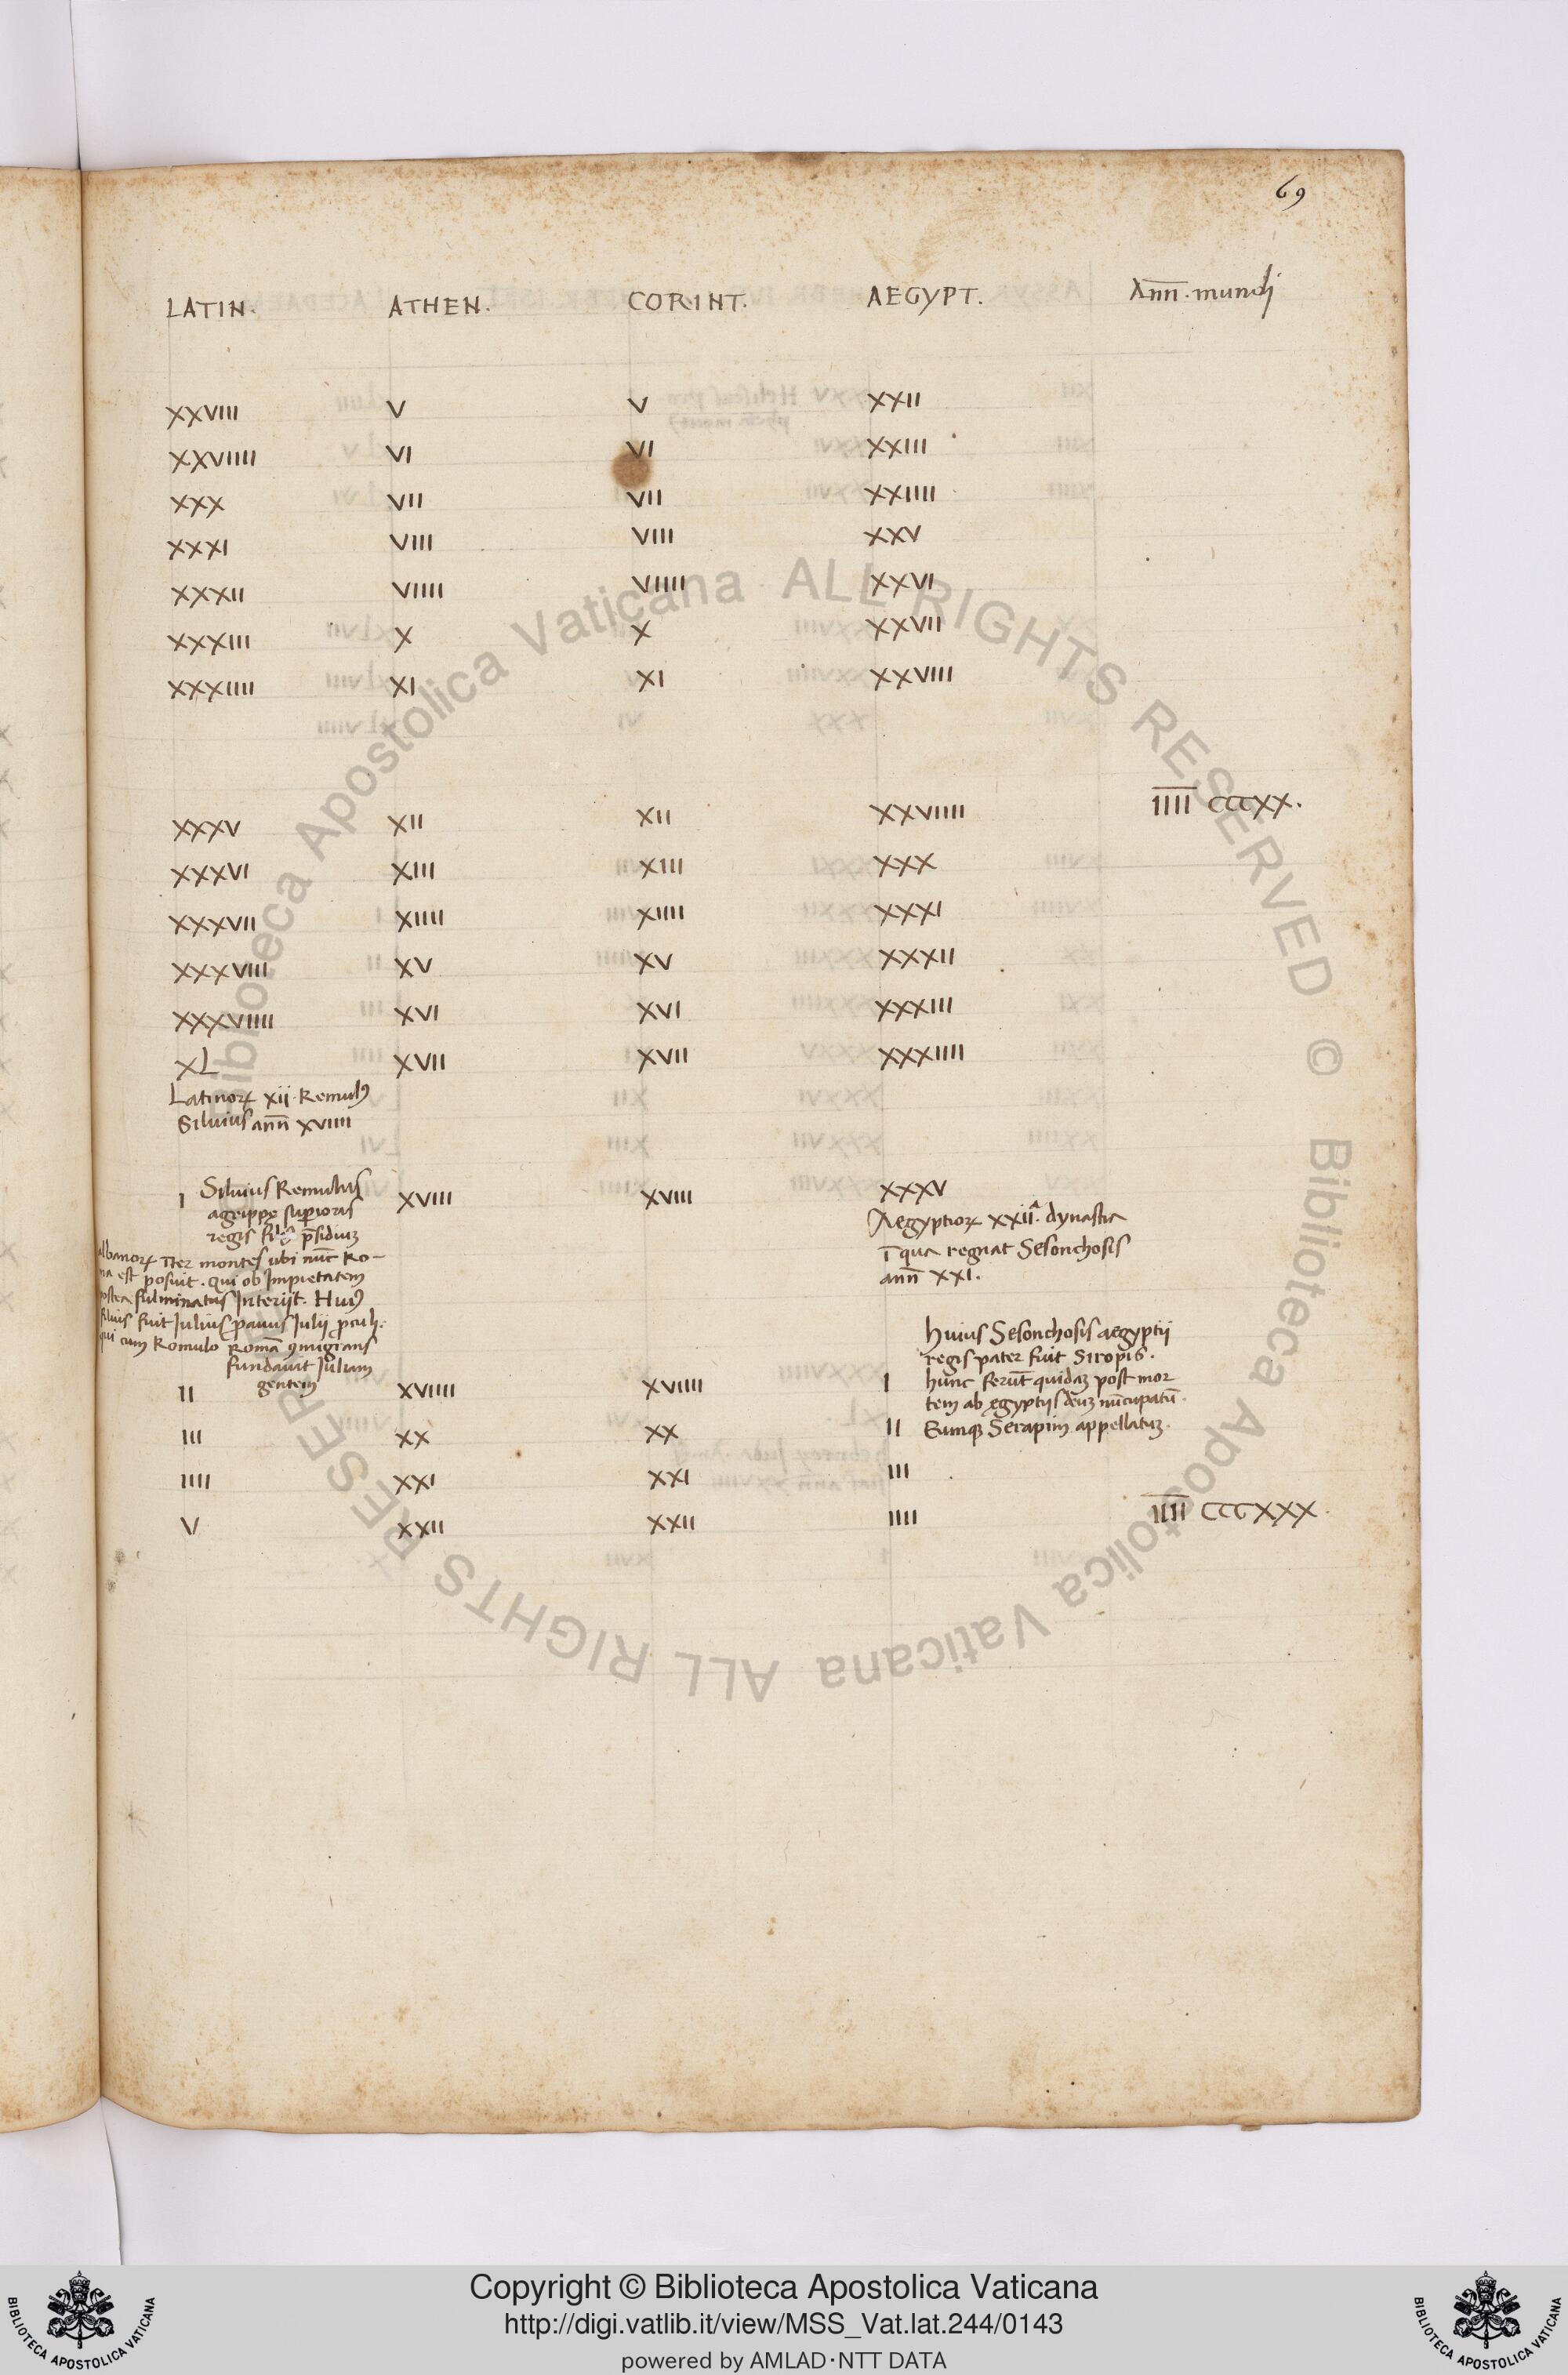 69
LATIN. ATHEN. CORINT. AEGYPT. Ann̄. mundi
XXVIII V V XXII
XXVIIII VI VI XXIII
XXX VII VII XXIIII
XXXI VIII VIII XXV
XXXII VIIII VIIII XXVI
XXXIII X X XXVII
XXXIIII XI XI XXVIII
XXXV XII XII XXVIIII I̅I̅I̅I̅ CCCXX.
XXXVI XIII XIII XXX
XXXVII XIIII XIIII XXXI
XXXVIII XV XV XXXII
XXXVIIII XVI XVI XXXIII
XL XVII XVII XXXIIII
Latinoꝝ xii. Remulꝰ
Siluius ann̄ XVIIII
I XVIII XVIII XXXV
Siluius Remulus
agrippe suꝑioris
regis p̄sidiuꝫ
albanoꝝ īter montes ubi nūc Ro-
ma est posuit. qui ob Impietatem
postea fulminatus Interijt. Huiꝰ
filius fuit Julius ꝓauus Julij ꝓculi.
qui cum Romulo Romā ꝯmigrans
fundauit Juliam
gentem
Aegyptioꝝ XXIIᵃ. dynastia
ī qua regnat Sesonchosis
ann̄ XXI.
Huius Sesonchosis aegyptii
regis pater fuit Siropis.
II XVIIII XVIIII I hunc ferūt quidaꝫ post mor
tem ab ęgyptijs deuꝫ nūcupatū.
III XX XX II Eumqꝫ Serapim appellatuꝫ.
IIII XXI XXI III
V XXII XXII IIII I̅I̅I̅I̅ CCCXXX.
Biblioteca Apostolica Vaticana ALL RIGHTS RESERVED © Biblioteca Apostolica Vaticana ALL RIGHTS RESERVED ©
Copyright © Biblioteca Apostolica Vaticana
http://digi.vatlib.it/view/MSS_Vat.lat.244/0143
powered by AMLAD·NTT DATA
BIBLIOTECA APOSTOLICA VATICANA
BIBLIOTECA APOSTOLICA VATICANA